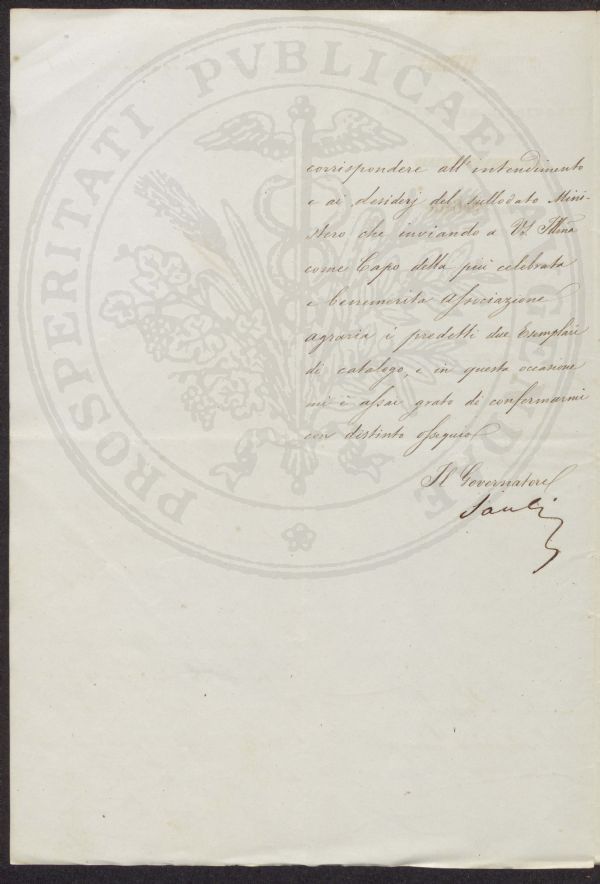 PROSPERITATI PVBLICAE AVGENDAE
corrispondere all'intendimento
e ai desiderj del sullodato Mini-
stero che inviando a V.S. Illma
come Capo della più celebrata
e benemerita Associazione
agraria i predetti due Esemplari
di catalogo, e in questa occasione
mi è assai grato di confermarmi
con distinto ossequio
Il Governatore
Sauli